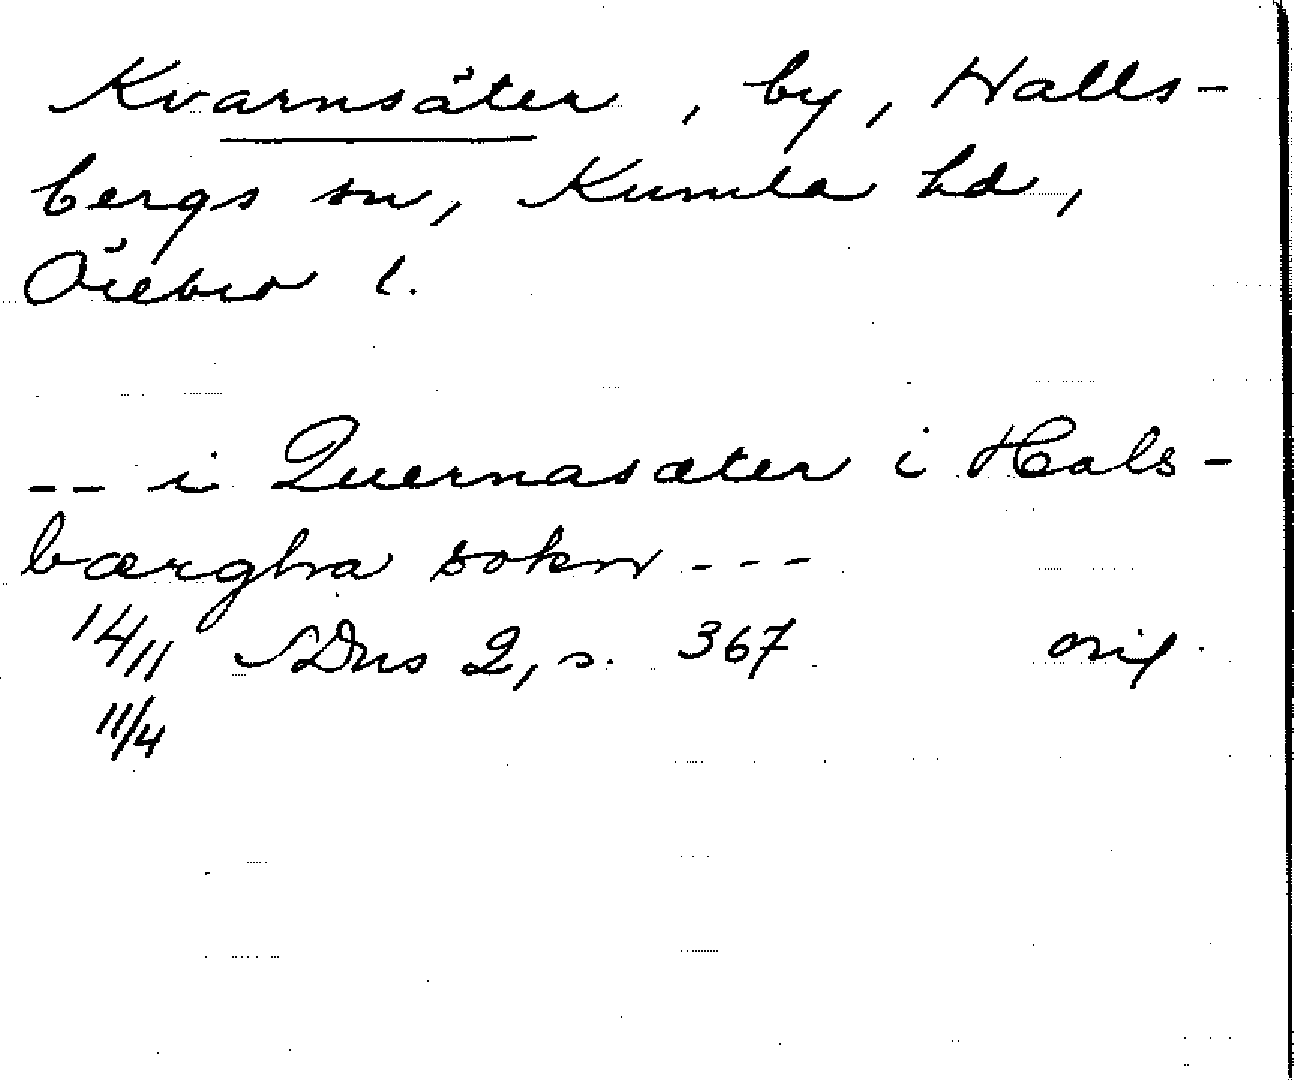 Kvarnsäter, by, Halls-
bergs sn, Kumla hd,
Örebro l.
-- i Quernasæter i Hals-
bærgha sokn ---
14/11 SDns 2, s. 367 orig.
11/4